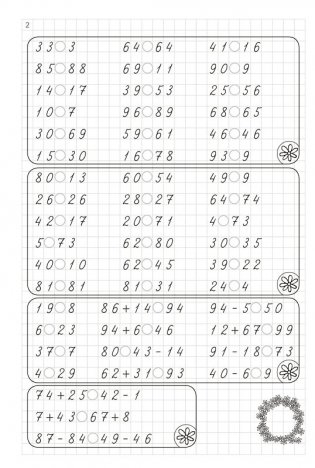 2
33○3 64○64 41○16
85○88 69○11 90○9
14○17 39○53 25○56
10○7 96○89 68○65
30○69 59○61 46○46
15○30 16○78 93○9
80○13 60○54 49○9
26○26 28○27 64○74
42○17 20○71 4○73
5○73 62○80 30○35
40○10 62○45 39○22
81○81 80○31 24○4
19○8 86+14○94 94-5○50
6○23 94+6○46 12+67○99
37○7 80○43-14 91-18○73
4○29 62+31○93 40-6○9
74+25○42-1
7+43○67+8
87-84○49-46